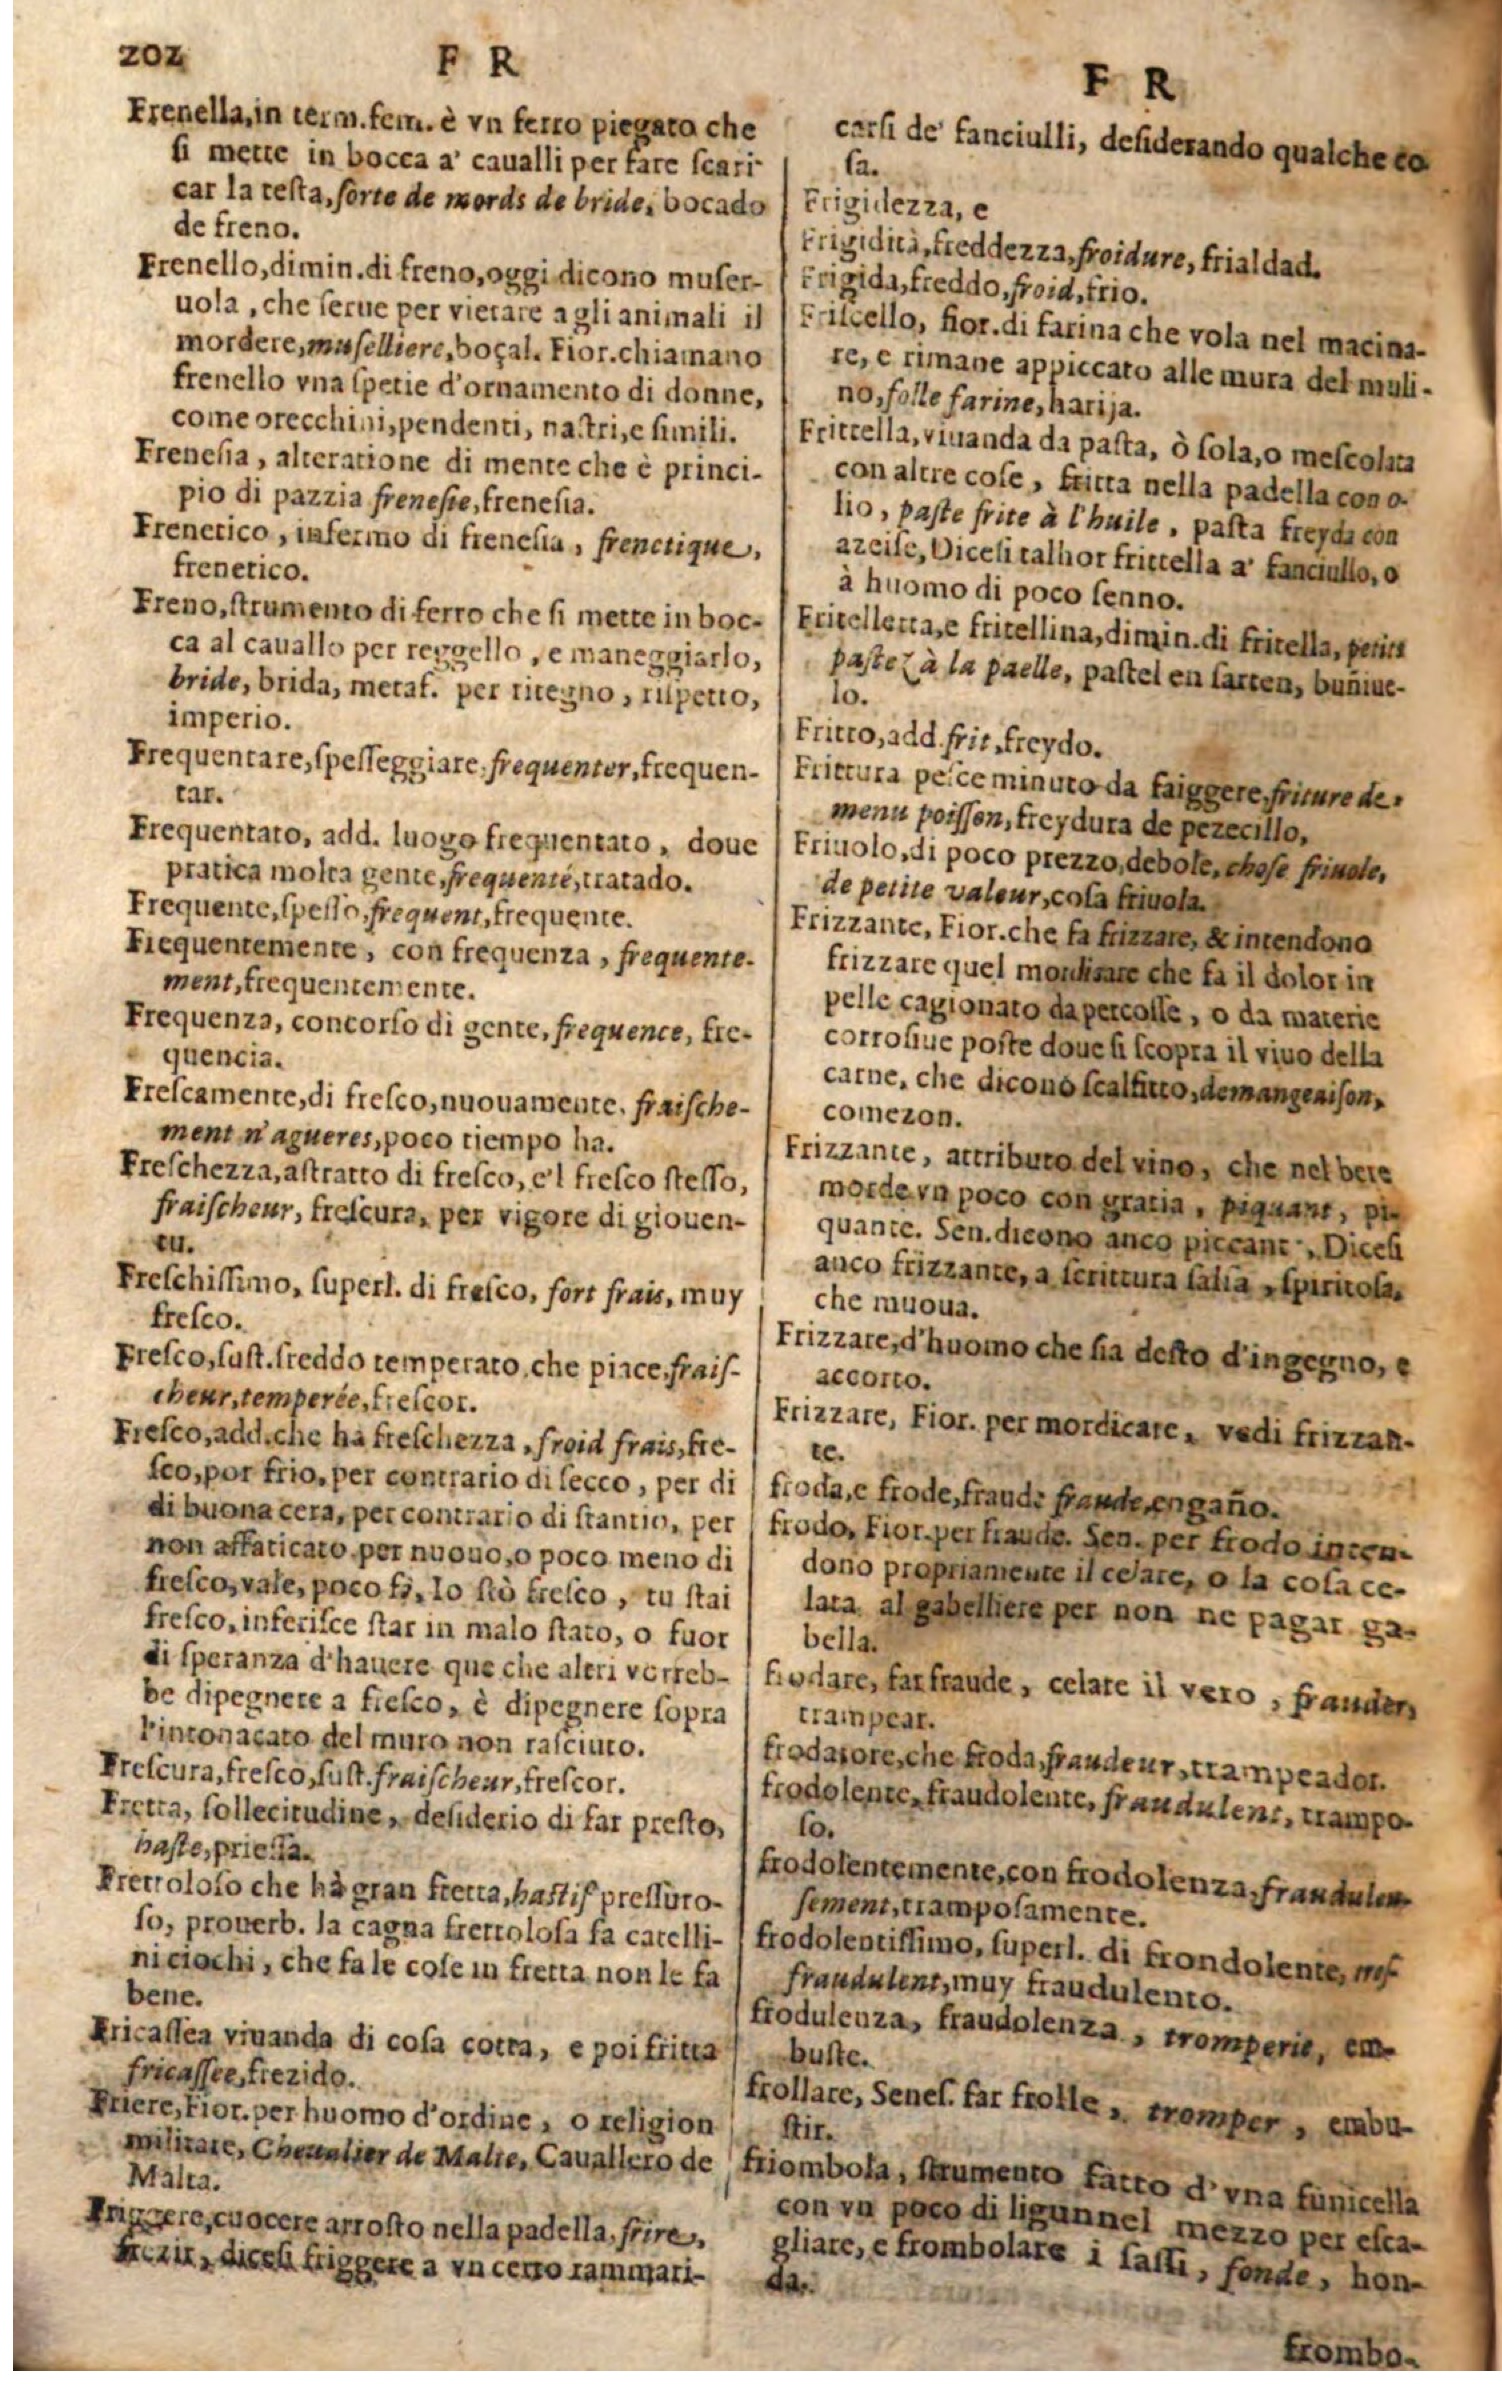 202
F R
Frenella, in term. fem. è vn ferro piegato che
ſi mette in bocca a' caualli per fare ſcari
car la teſta, ſorte de mords de bride, bocado
de freno.
Frenello, dimin. di freno, oggi dicono muſer-
uola, che ſerue per vietare a gli animali il
mordere, muſelliere, boçal. Fior. chiamano
frenello vna ſpetie d'ornamento di donne,
come orecchini, pendenti, naſtri, e ſimili.
Freneſia, alteratione di mente che è princi-
pio di pazzia freneſie, freneſia.
Frenetico, infermo di freneſia, frenetique,
frenetico.
Freno, ſtrumento di ferro che ſi mette in boc-
ca al cauallo per reggello, e maneggiarlo,
bride, brida, metaf. per ritegno, riſpetto,
imperio.
Frequentare, ſpeſſeggiare, frequenter, frequen-
tar.
Frequentato, add. luogo frequentato, doue
pratica molta gente, frequenté, tratado.
Frequente, ſpeſſo, frequent, frequente.
Frequentemente, con frequenza, frequente-
ment, frequentemente.
Frequenza, concorſo di gente, frequence, fre-
quencia.
Freſcamente, di freſco, nuouamente. fraiſche-
ment n'agueres, poco tiempo ha.
Freſchezza, aſtratto di freſco, e'l freſco ſteſſo,
fraiſcheur, freſcura, per vigore di giouen-
tu.
Freſchiſſimo, ſuperl. di freſco, fort frais, muy
freſco.
Freſco, ſuſt. freddo temperato che piace, fraiſ-
cheur, temperée, freſcor.
Freſco, add. che hà freſchezza, froid frais, fre-
ſco, por frio, per contrario di ſecco, per di
di buona cera, per contrario di ſtantio, per
non affaticato per nuouo, o poco meno di
freſco, vale, poco fà, Io ſtò freſco, tu ſtai
freſco, inferiſce ſtar in malo ſtato, o fuor
di ſperanza d'hauere que che altri vorreb-
be dipegnere a freſco, è dipegnere ſopra
l'intonacato del muro non raſciuto.
Freſcura, freſco, ſuſt. fraiſcheur, freſcor.
Fretta, ſollecitudine, deſiderio di far preſto,
haſte, prieſſa.
Frettoloſo che hà gran fretta, haſtif preſſuro-
ſo, prouerb. la cagna frettoloſa fa catelli-
ni ciochi, che fa le coſe in fretta non le fa
bene.
Fricaſſea viuanda di coſa cotta, e poi fritta
fricaſſee, frezido.
Friere, Fior. per huomo d'ordine, o religion
militare, Cheualier de Malte, Cauallero de
Malta.
Friggere, cuocere arroſto nella padella, frire,
frezir, diceſi friggere a vn certo rammari-
F R
carſi de' fanciulli, deſiderando qualche co
ſa.
Frigidezza, e
Frigidità, freddezza, froidure, frialdad.
Frigida, freddo, froid, frio.
Friſcello, fior. di farina che vola nel macina-
re, e rimane appiccato alle mura del muli-
no, folle farine, harija.
Frittella, viuanda da paſta, ò ſola, o meſcolata
con altre coſe, fritta nella padella con o-
lio, paſte frite à l'huile, paſta freyda con
azeiſe, Diceſi talhor frittella a' fanciullo, o
à huomo di poco ſenno.
Fritelletta, e fritellina, dimin. di fritella, petits
paſtez à la paelle, paſtel en ſarten, buñiue-
lo.
Fritto, add. frit, freydo.
Frittura peſce minuto da faiggere, friture de
menu poiſſon, freydura de pezecillo,
Friuolo, di poco prezzo, debole, choſe friuole,
de petite valeur, coſa friuola.
Frizzante, Fior. che fa frizzare, & intendono
frizzare quel che fa il dolor in
pelle cagionato da percoſſe, o da materie
corroſiue poſte doue ſi ſcopra il viuo della
carne, che dicono ſcalfitto, demangeaiſon,
comezon.
Frizzante, attributo del vino, che nel bere
morde vn poco con gratia, piquant, pi-
quante. Sen. dicono anco piccante, Diceſi
anco frizzante, a ſcrittura ſalſa, ſpiritoſa,
che muoua.
Frizzare, d'huomo che ſia deſto d'ingegno, e
accorto.
Frizzare, Fior. per mordicare, vedi frizzan-
te.
froda, e frode, fraude fraude, engaño.
frodo, Fior. per fraude. Sen. per frodo inten-
dono propriamente il celare, o la coſa ce-
lata al gabelliere per non ne pagar ga-
bella.
frodare, far fraude, celare il vero, frauder,
trampear.
frodatore, che froda, fraudeur, trampeador.
frodolente, fraudolente, fraudulent, trampo-
ſo.
frodolentemente, con frodolenza, fraudulen-
ſement, trampoſamente.
frodolentiſſimo, ſuperl. di frondolente, treſ
fraudulent, muy fraudulento.
frodulenza, fraudolenza, tromperie, em-
buſte.
frollare, Seneſ. far frolle, tromper, embu-
ſtir.
friombola, ſtrumento fatto d'vna funicella
con vn poco di ligunnel mezzo per eſca-
gliare, e frombolare i ſaſſi, fonde, hon-
da.
frombo-